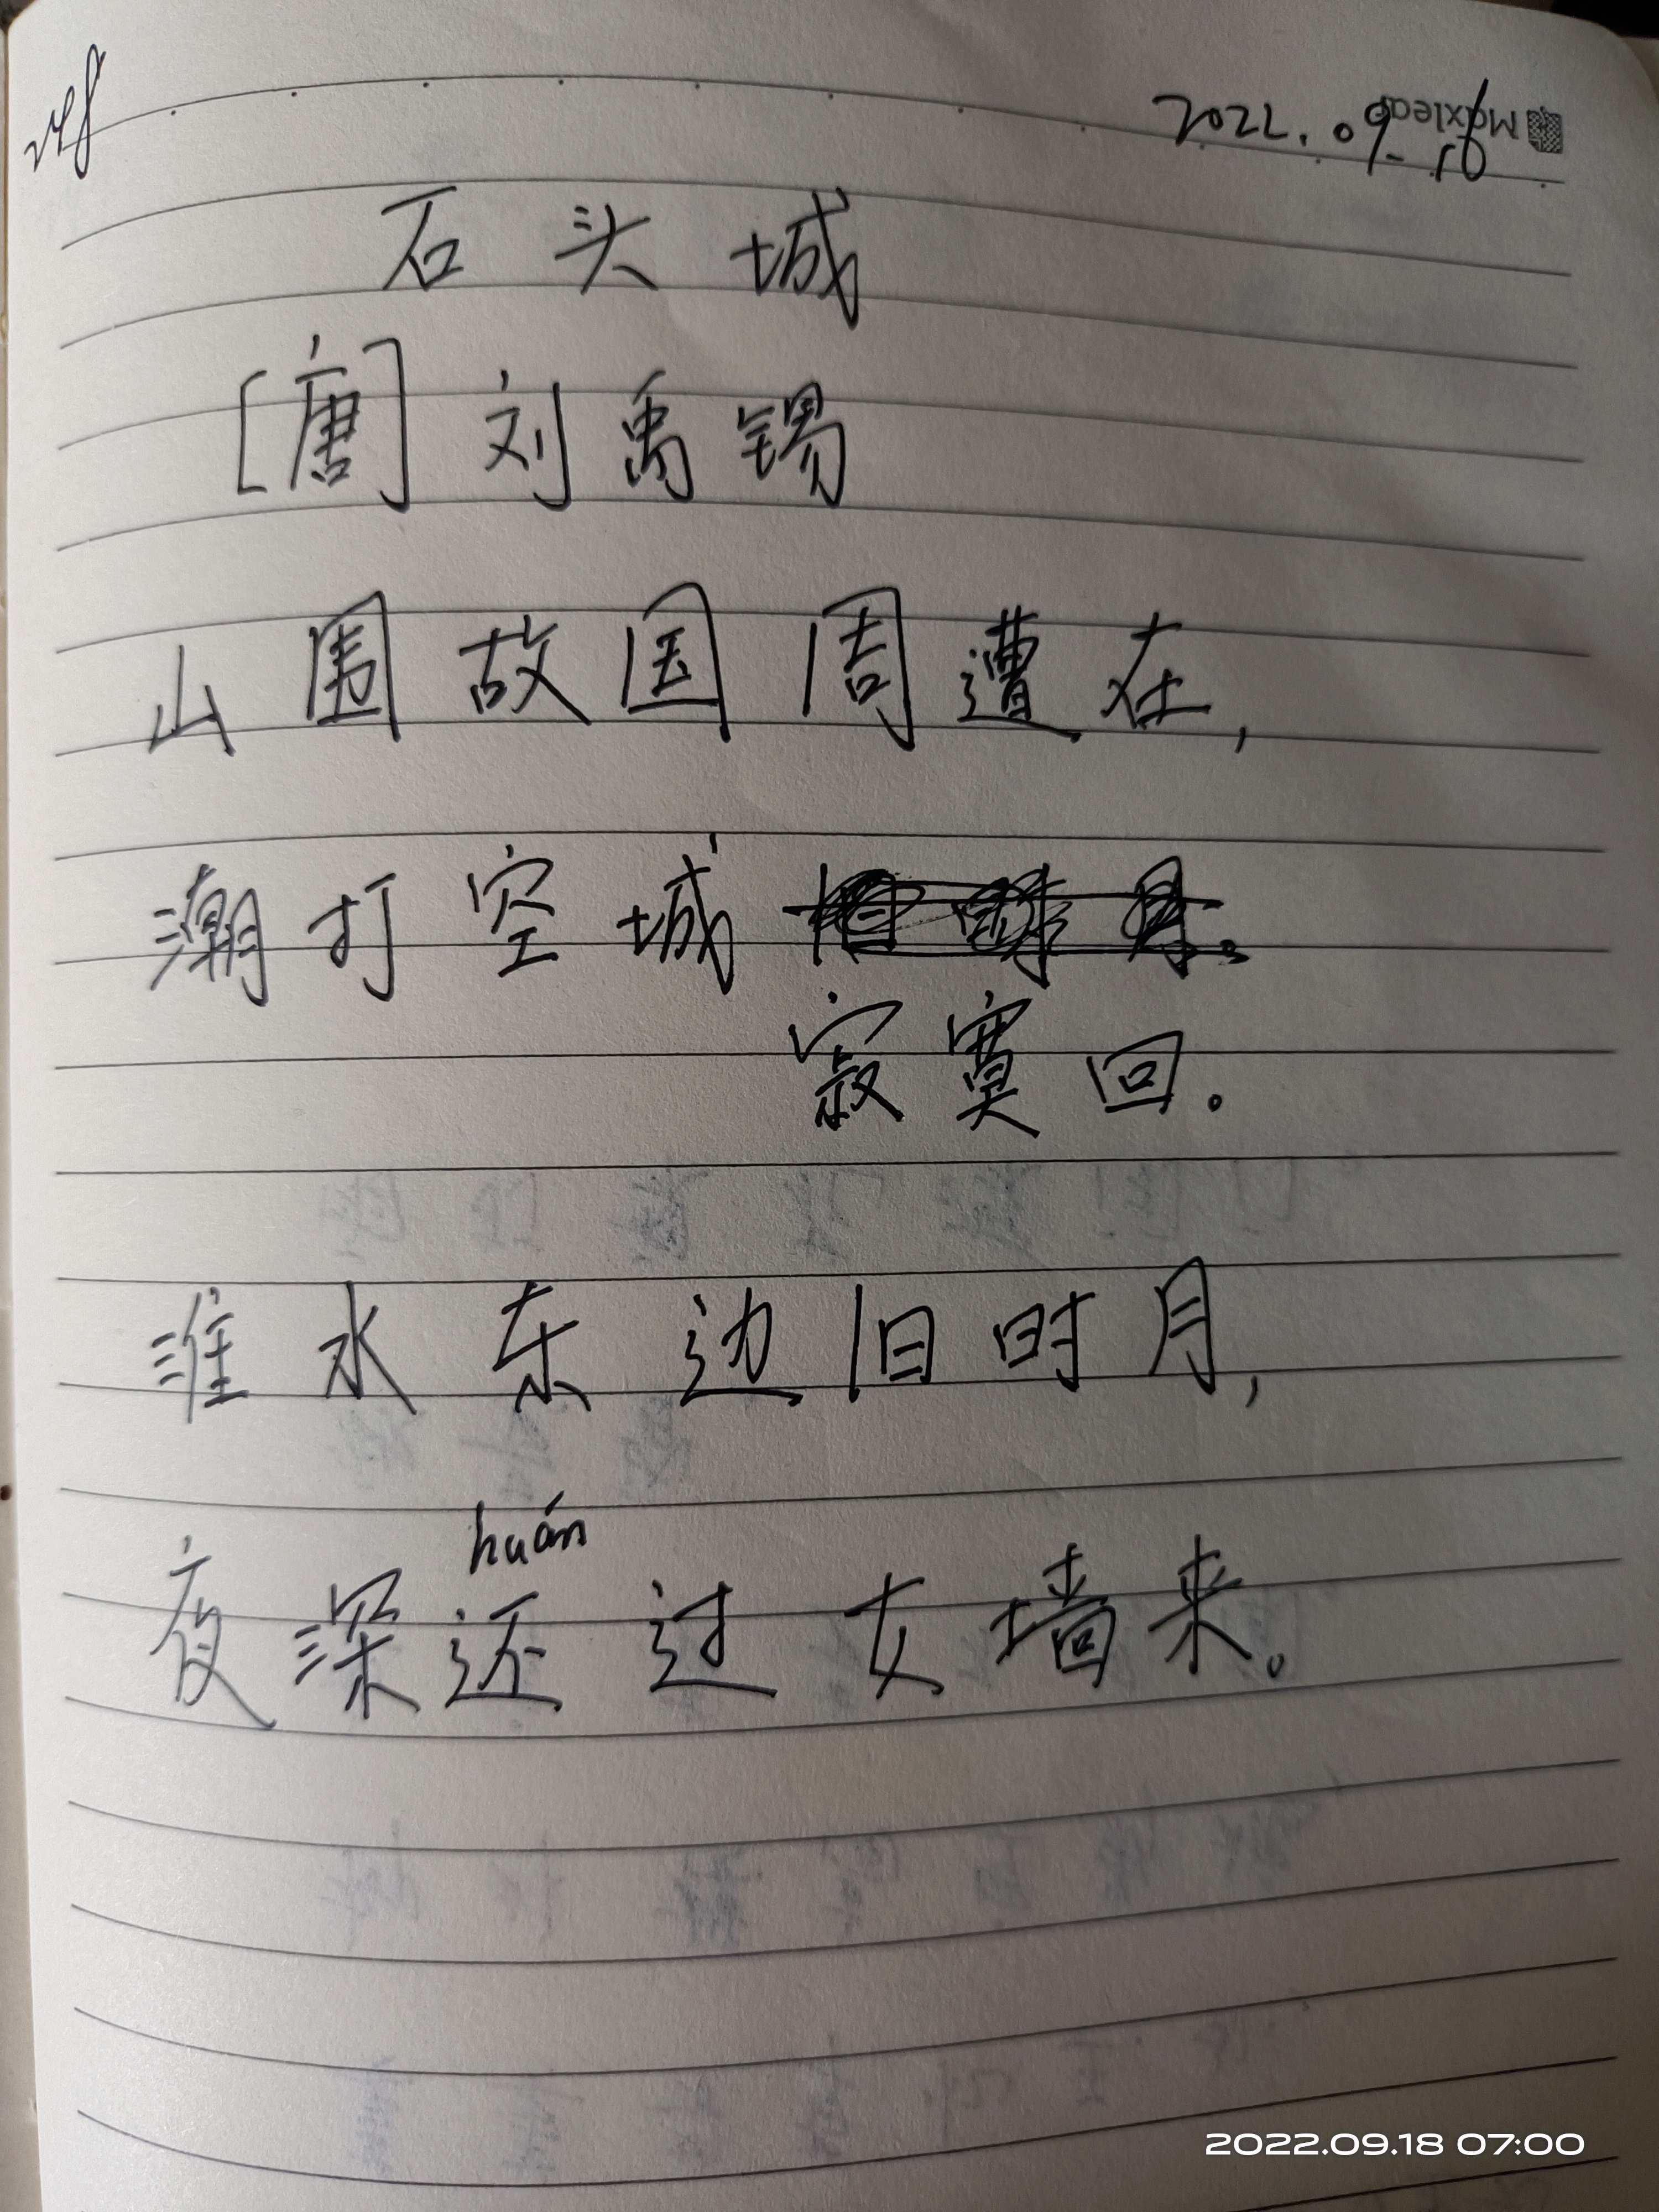 2022.09.18
Maxleaf
石头城
[唐] 刘禹锡
山围故国周遭在,
潮打空城旧时月。
寂寞回。
淮水东边旧时月,
夜深还过女墙来。
huán
2022.09.18 07:00